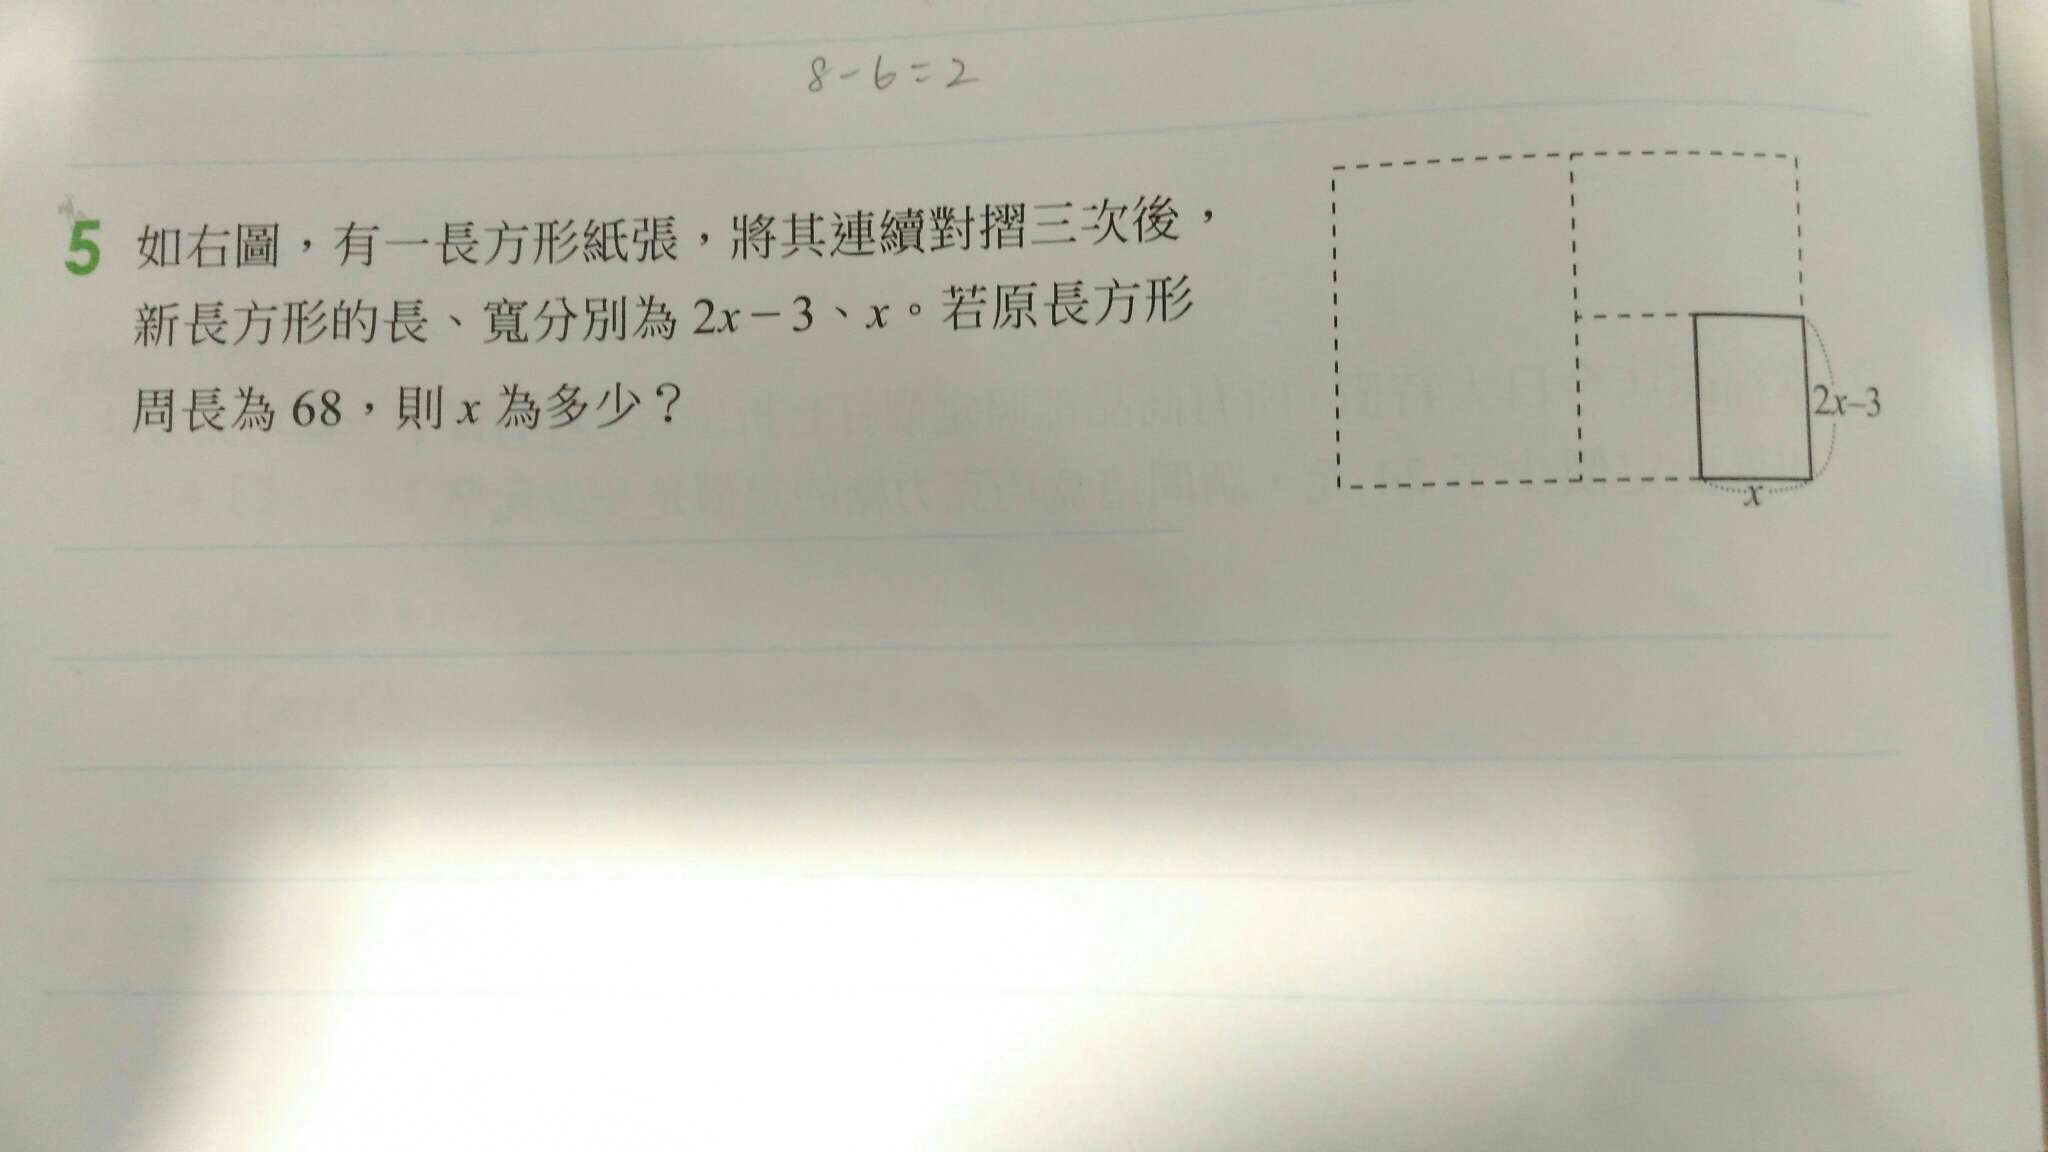 8-6=2
5 如右圖，有一長方形紙張，將其連續對摺三次後，
新長方形的長、寬分別為 2x－3、x。若原長方形
周長為 68，則 x 為多少？
2x–3
x